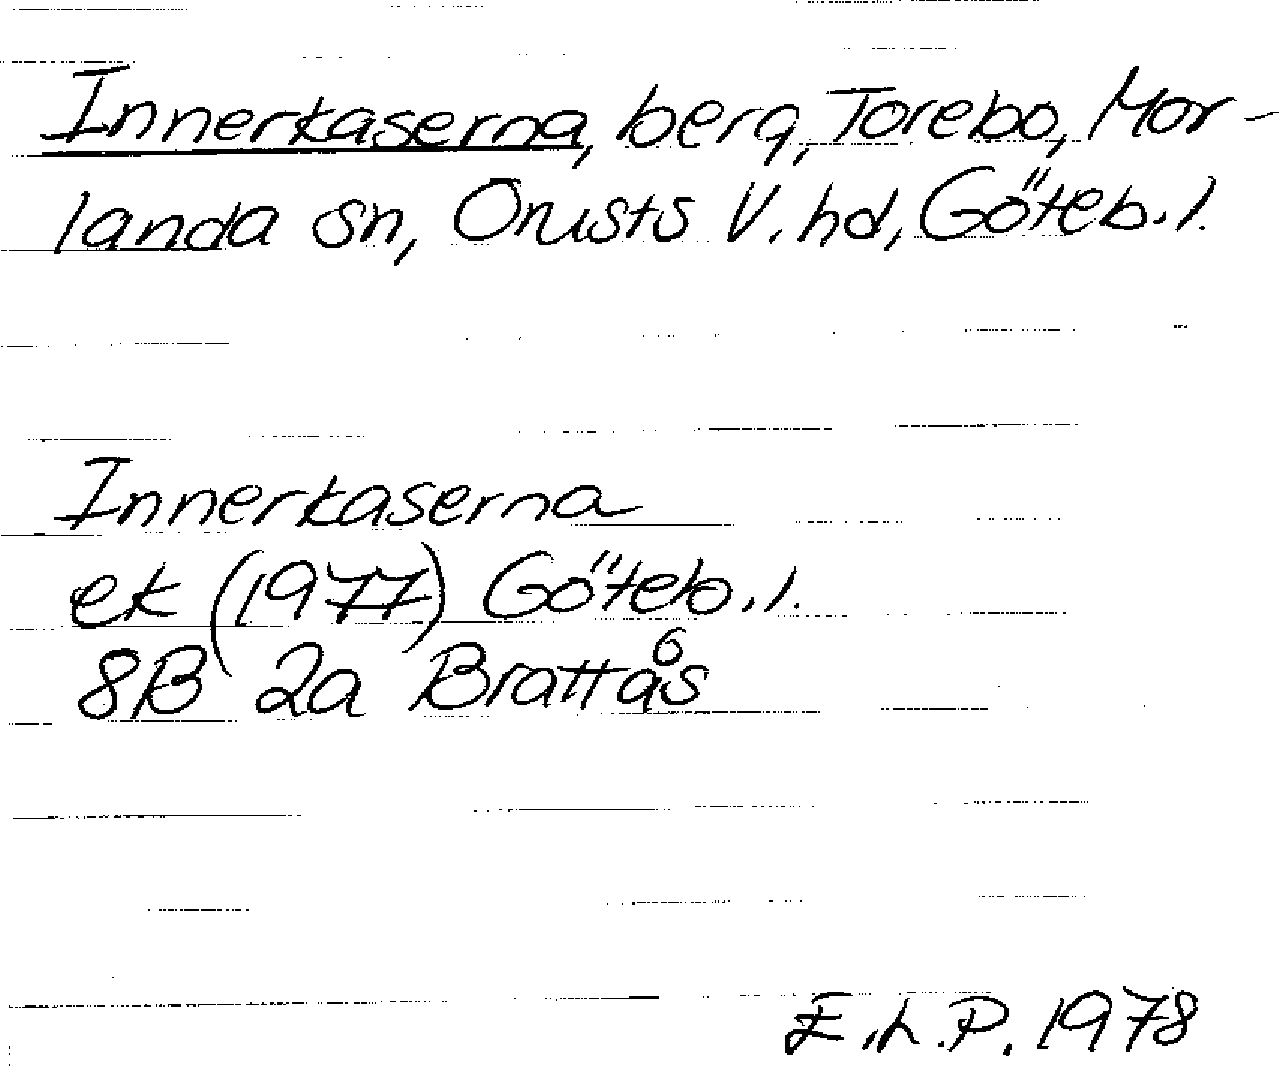 Innerkaserna, berg, Torebo, Mor-
landa sn, Orusts V. hd, Göteb. l.
Innerkaserna
ek (1977) Göteb. l.
8B 2a Brattås
E.h.P. 1978